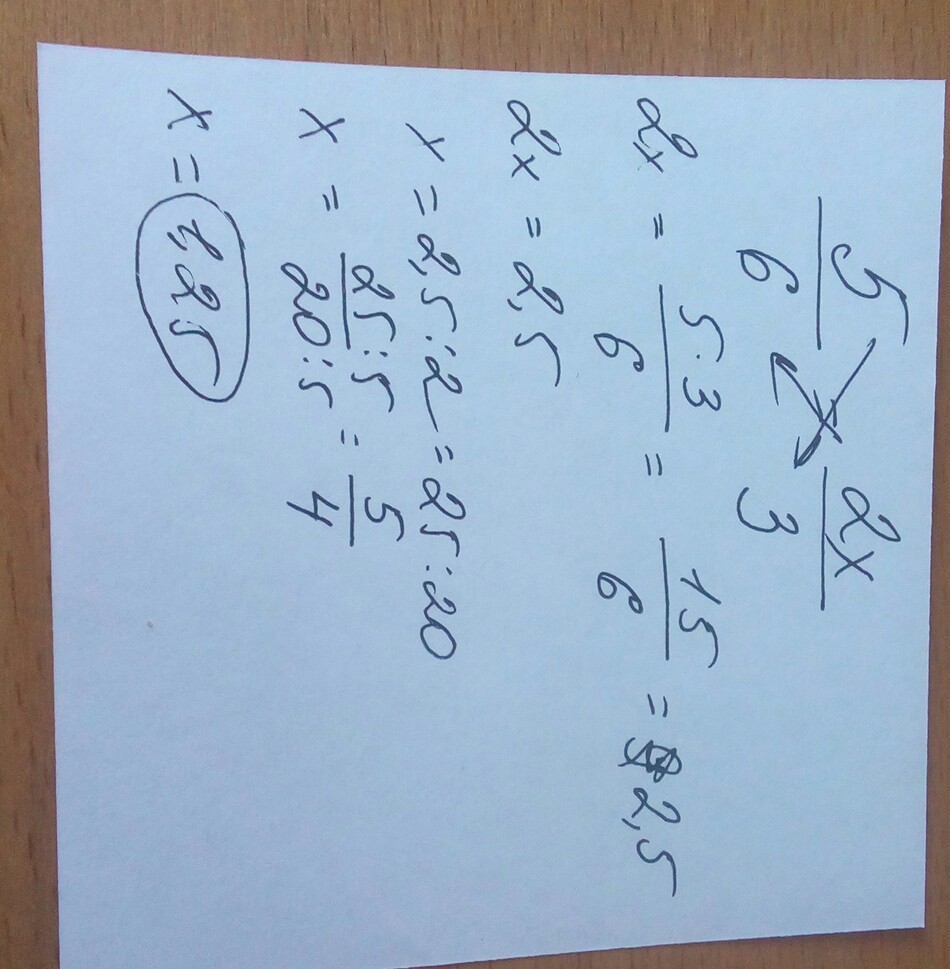 5/6 = 2x/3
2x = 5·3/6 = 15/6 = 2,5
2x = 2,5
x = 2,5:2 = 25:20
x = 25:5/20:5 = 5/4
x = 1,25